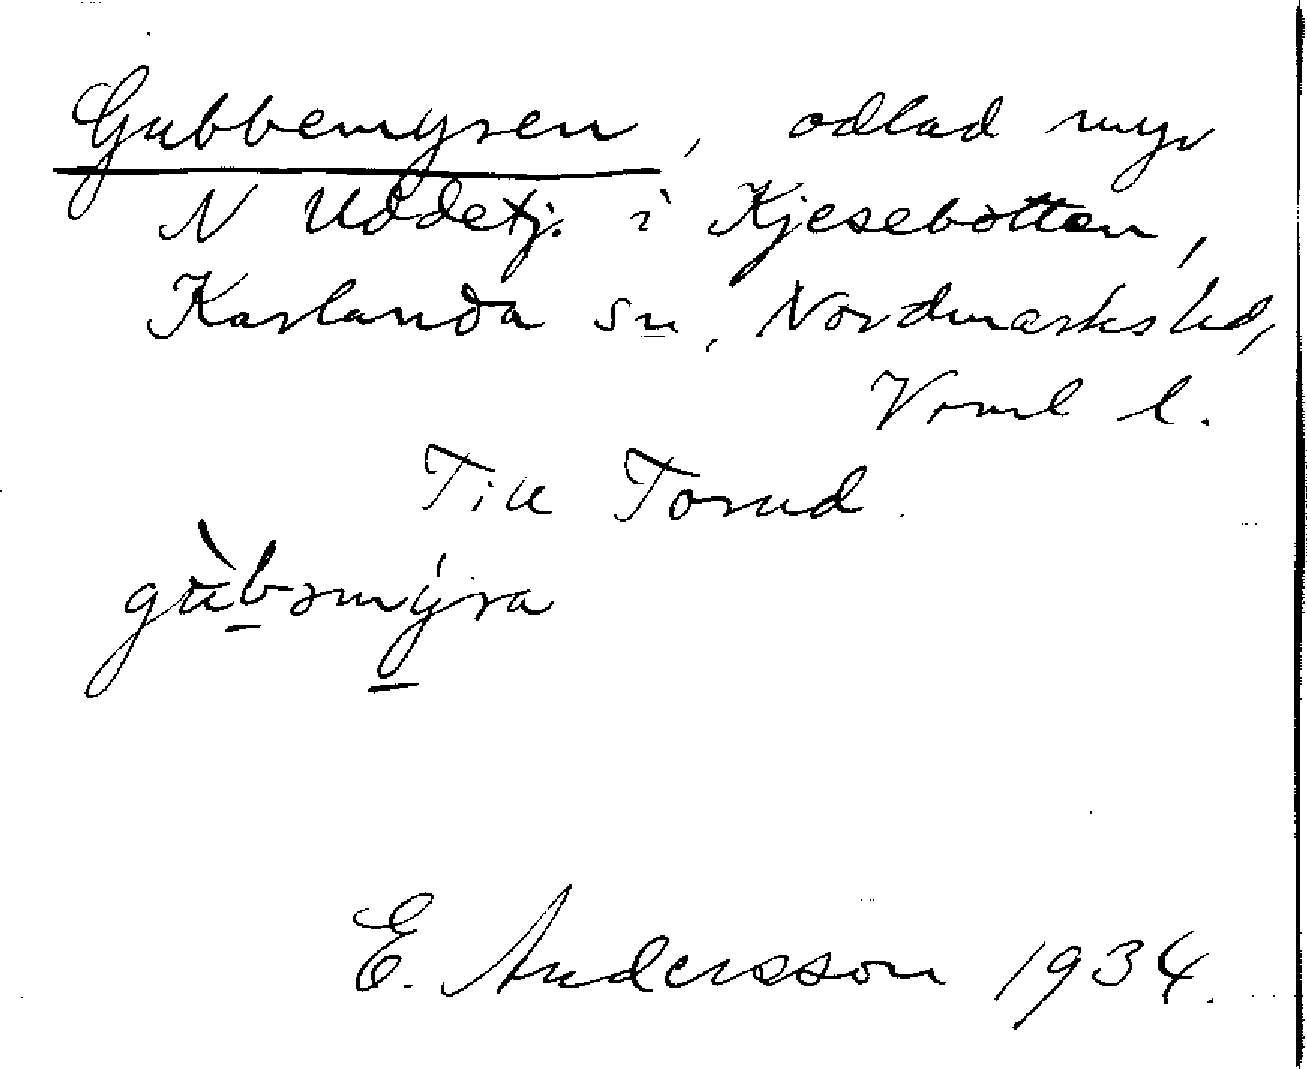 Gubbemyren, odlad myr
N Uddetj. i Kjesebotten,
Karlanda sn, Nordmarks hd,
Vrml l.
Till Torud.
gùbəmýra
E. Andersson 1934.